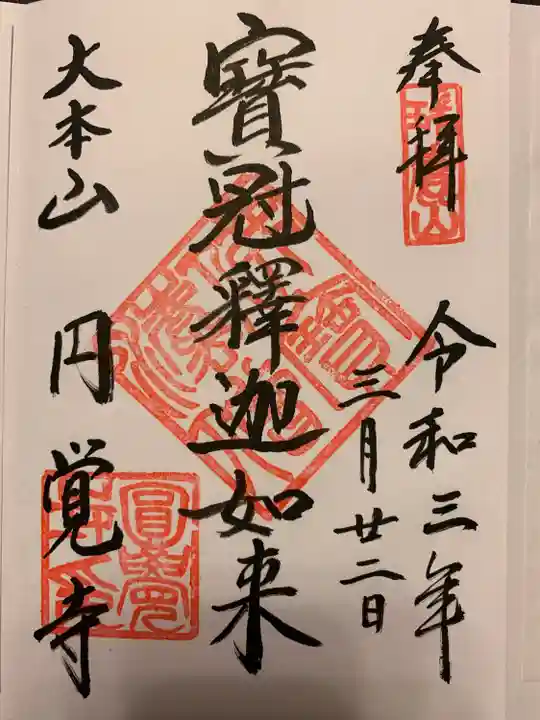 奉拝
令和三年
三月廿二日
寳冠釋迦如来
大本山 円覚寺